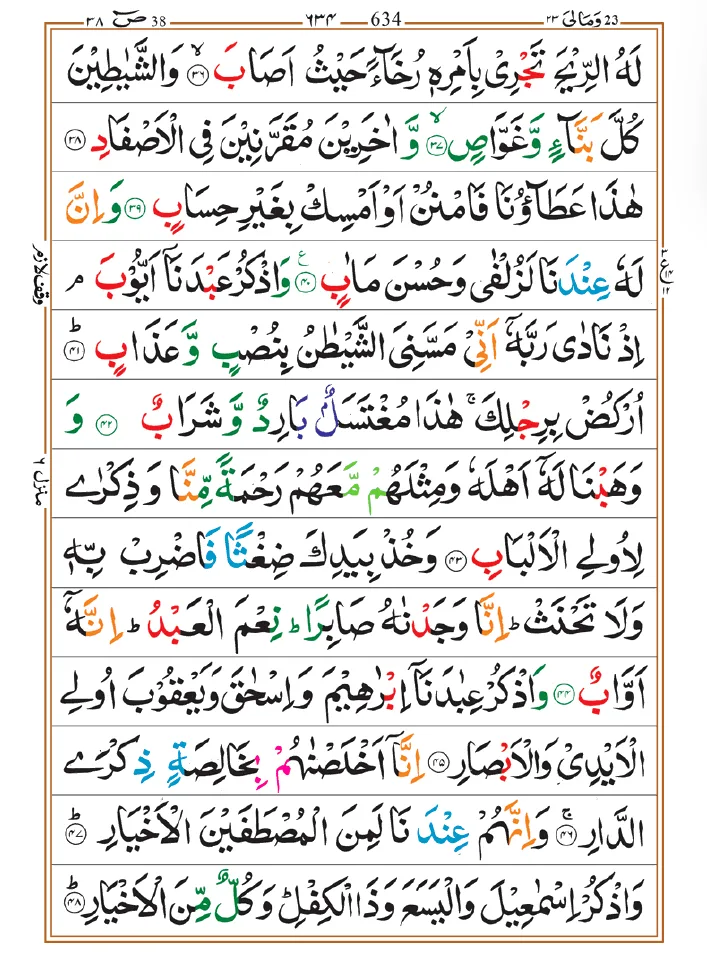 ٣٨ صٓ 38 ٦٣٤ 634 ٢٣ وَمَالِیَ 23
لَهُ الرِّيْحَ تَجْرِیْ بِاَمْرِهٖ رُخَآءً حَيْثُ اَصَابَ ۙ﴿۳۶﴾ وَالشَّيٰطِيْنَ
كُلَّ بَنَّآءٍ وَّغَوَّاصٍ ۙ﴿۳۷﴾ وَّ اٰخَرِيْنَ مُقَرَّنِيْنَ فِی الْاَصْفَادِ ﴿۳۸﴾
هٰذَا عَطَآؤُنَا فَامْنُنْ اَوْ اَمْسِكْ بِغَيْرِ حِسَابٍ ﴿۳۹﴾ وَاِنَّ
لَهٗ عِنْدَنَا لَزُلْفٰی وَحُسْنَ مَاٰبٍ ﴿۴۰﴾ ع وَاذْكُرْ عَبْدَنَآ اَيُّوْبَ م
اِذْ نَادٰی رَبَّهٗٓ اَنِّیْ مَسَّنِیَ الشَّيْطٰنُ بِنُصْبٍ وَّعَذَابٍ ؕ﴿۴۱﴾
اُرْكُضْ بِرِجْلِكَ ۚ هٰذَا مُغْتَسَلٌۢ بَارِدٌ وَّشَرَابٌ ﴿۴۲﴾ وَ
وَهَبْنَا لَهٗٓ اَهْلَهٗ وَمِثْلَهُمْ مَّعَهُمْ رَحْمَةً مِّنَّا وَ ذِكْرٰی
لِاُولِی الْاَلْبَابِ ﴿۴۳﴾ وَخُذْ بِيَدِكَ ضِغْثًا فَاضْرِبْ بِّهٖ
وَلَا تَحْنَثْ ؕ اِنَّا وَجَدْنٰهُ صَابِرًا ؕ نِعْمَ الْعَبْدُ ؕ اِنَّهٗٓ
اَوَّابٌ ﴿۴۴﴾ وَاذْكُرْ عِبٰدَنَآ اِبْرٰهِيْمَ وَاِسْحٰقَ وَيَعْقُوْبَ اُولِی
الْاَيْدِیْ وَالْاَبْصَارِ ﴿۴۵﴾ اِنَّآ اَخْلَصْنٰهُمْ بِخَالِصَةٍ ذِكْرَی
الدَّارِ ۚ﴿۴۶﴾ وَاِنَّهُمْ عِنْدَنَا لَمِنَ الْمُصْطَفَيْنَ الْاَخْيَارِ ؕ﴿۴۷﴾
وَاذْكُرْ اِسْمٰعِيْلَ وَالْيَسَعَ وَذَا الْكِفْلِ ؕ وَكُلٌّ مِّنَ الْاَخْيَارِ ؕ﴿۴۸﴾
وقف لازم
منزل ٦
ع ١٢